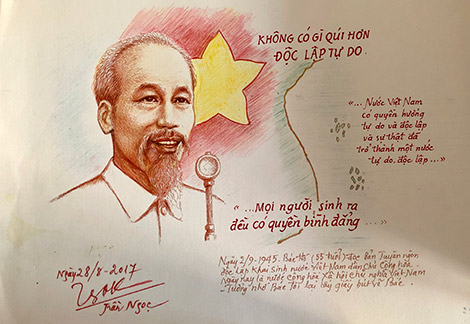 KHÔNG CÓ GÌ QUÍ HƠN
ĐỘC LẬP TỰ DO.
"...Nước Việt Nam
có quyền hưởng
tự do và độc lập
và sự thật đã
trở thành một nước
tự do, độc lập..."
"...Mọi người sinh ra
đều có quyền bình đẳng..."
Ngày 2/9-1945. Bác Hồ (55 tuổi) đọc Bản Tuyên ngôn
độc lập Khai Sinh nước Việt Nam dân Chủ Cộng hòa
Ngày nay là nước Cộng hòa Xã hội Chủ nghĩa Việt Nam
Tưởng nhớ Bác Tôi lại lấy giấy bút vẽ Bác.
Ngày 28/8-2017
Trần Ngọc